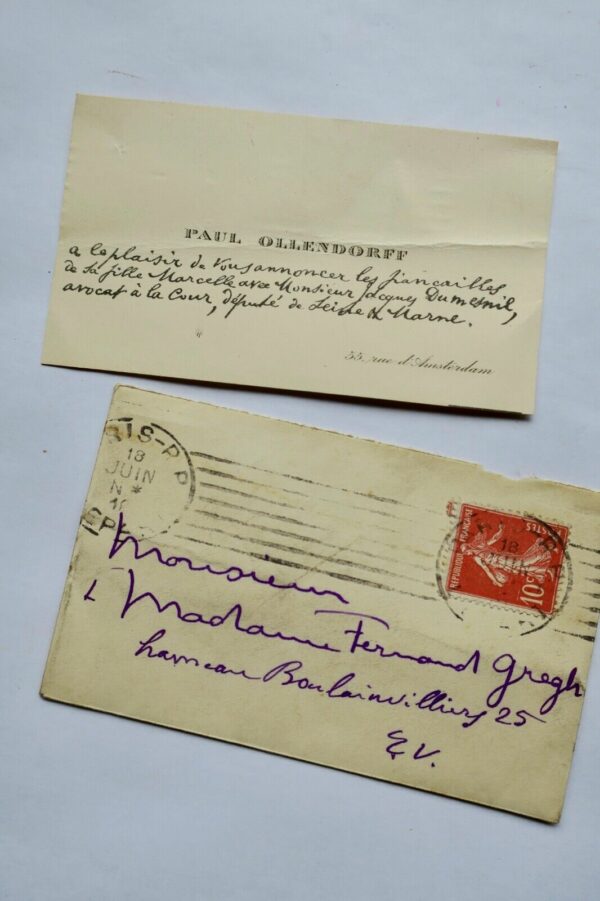 PAUL OLLENDORFF
a le plaisir de vous annoncer les fiançailles
de sa fille Marcelle avec Monsieur Jacques Dumesnil,
avocat à la Cour, député de Seine & Marne.
55, rue d'Amsterdam
18
JUIN
RÉPUBLIQUE FRANÇAISE
POSTES
10c
18
Monsieur
& Madame Fernand Gregh
hameau Boulainvilliers 25
E.V.